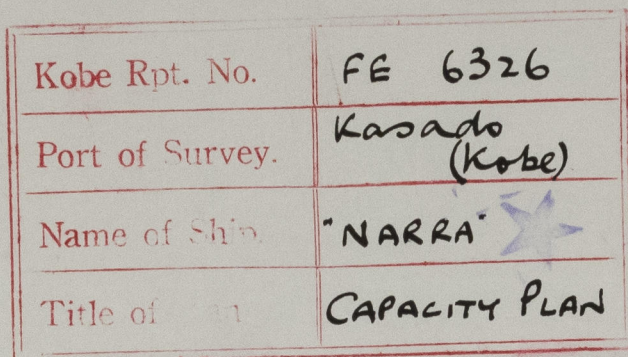 Kobe Rpt. No. FE 6326
Port of Survey. Kasado
(Kobe)
Name of Ship. "NARRA"
Title of CAPACITY PLAN